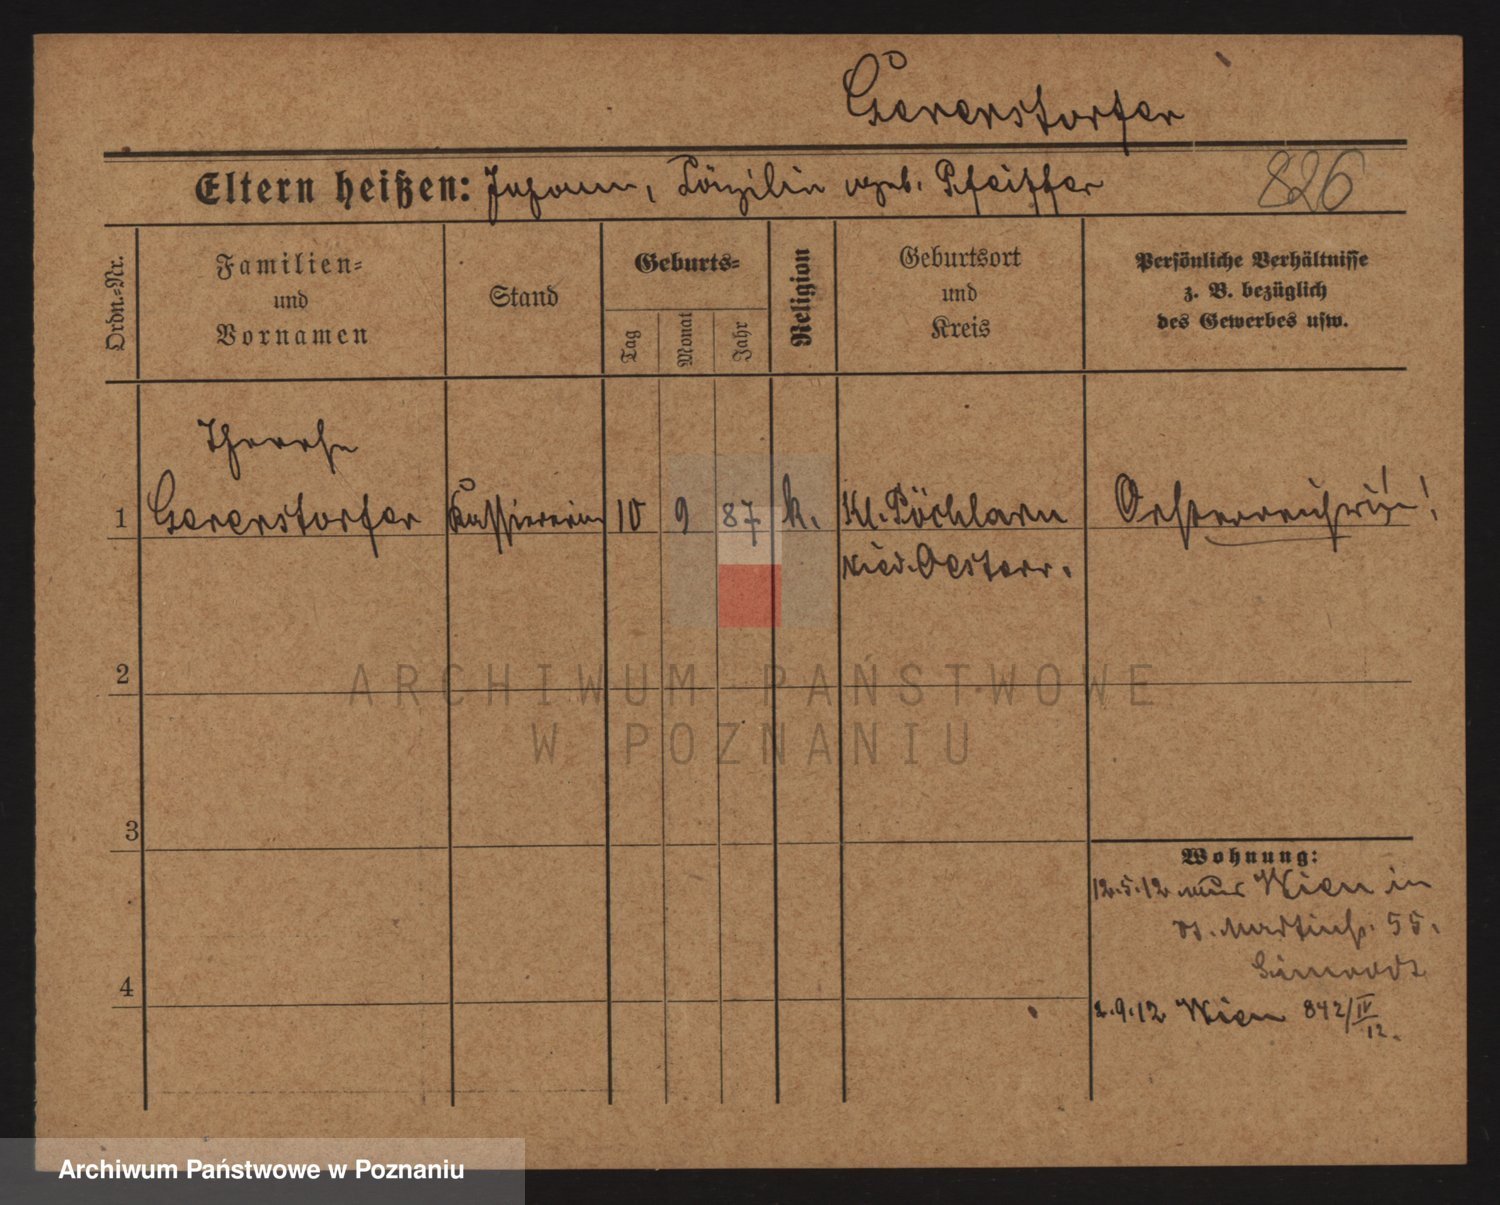 Gererstorfer
Eltern heißen: Johann, Cäzilia geb. Pfeiffer 826
Ordn.-Nr.
Familien-
und
Vornamen
Stand
Geburts-
Tag
Monat
Jahr
Religion
Geburtsort
und
Kreis
Persönliche Verhältnisse
z. B. bezüglich
des Gewerbes usw.
Therese
1 Gererstorfer Kassiererin 10 9 87 k. Kl. Pöchlarn Oesterreicherin!
Nied. Oesterr.
2
3
4
Wohnung:
12.5.12 aus Wien in
St. Martinstr. 55.
2.9.12 Wien 842/IV
12.
ARCHIWUM PAŃSTWOWE
W POZNANIU
Archiwum Państwowe w Poznaniu